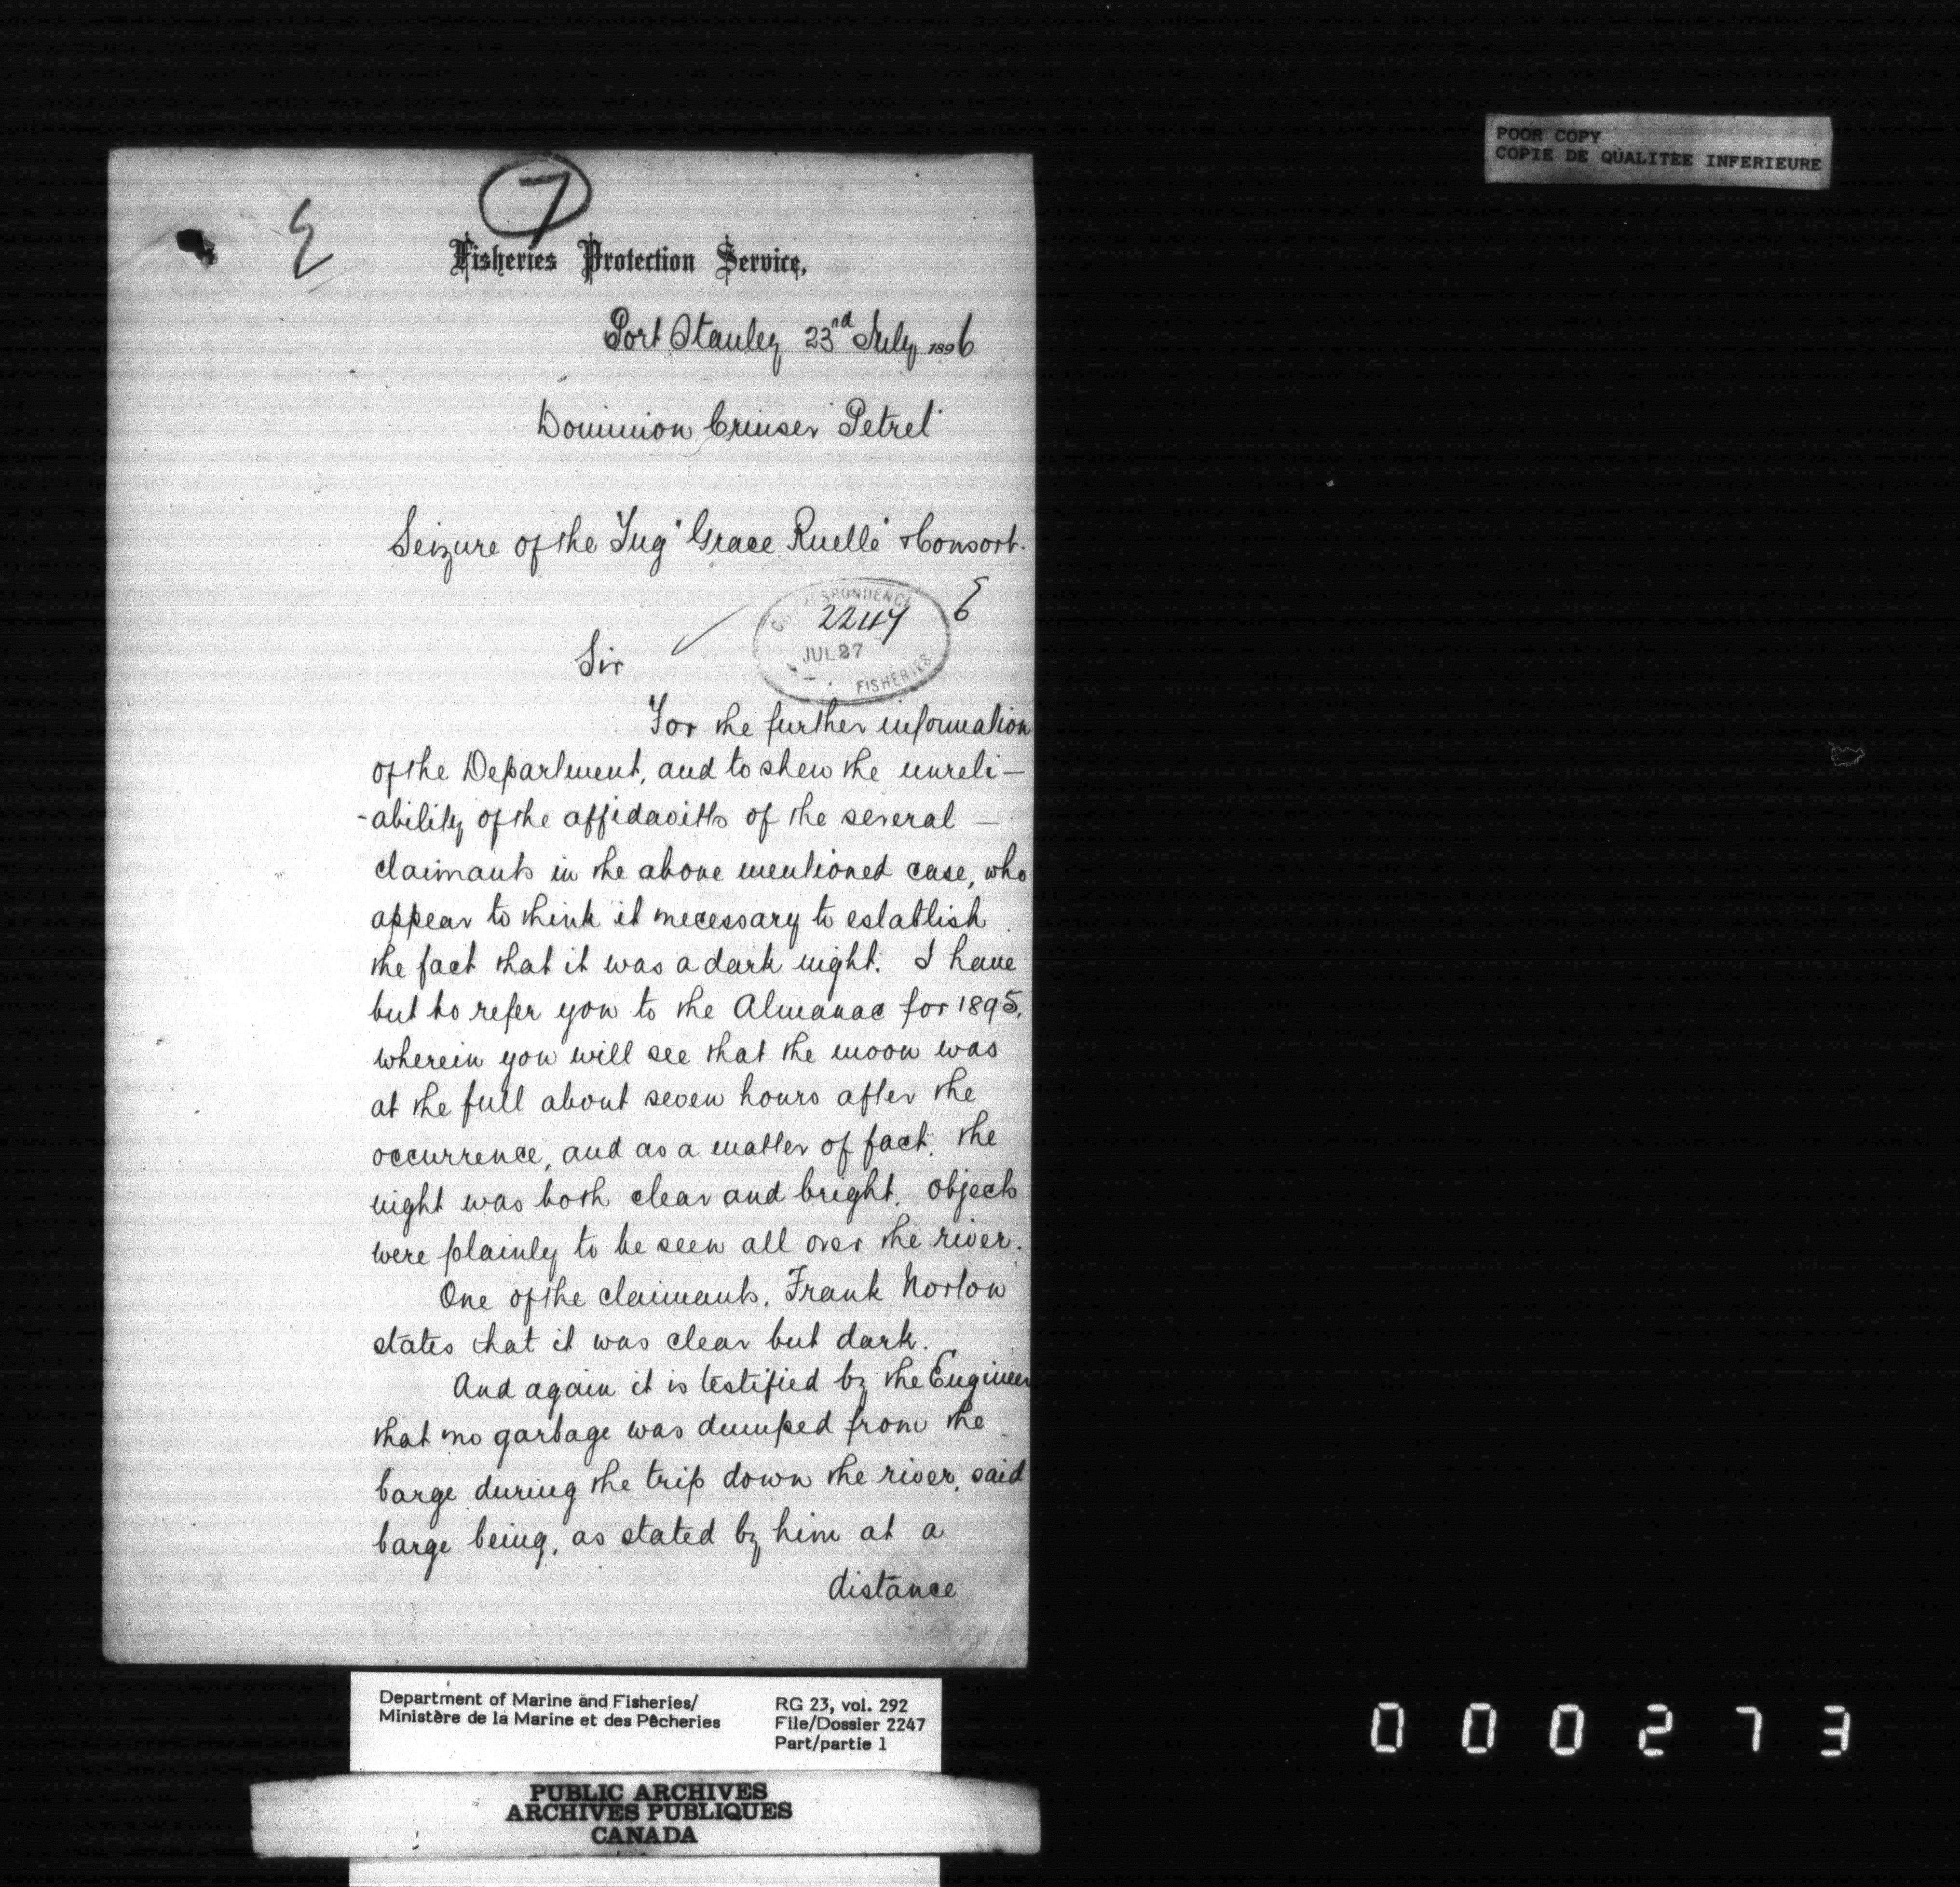 POOR COPY
COPIE DE QUALITEE INFERIEURE
7
Fisheries Protection Service,
Port Stanley 23rd July 1896
Dominion Cruiser "Petrel"
Seizure of the Tug "Grace Ruelle" & Consort.
CORRESPONDENCE
2247
JUL 27
FISHERIES
Sir
For the further information
of the Department, and to shew the unreli-
-ability of the affidavitts of the several -
claimants in the above mentioned case, who
appear to think it necessary to establish
the fact that it was a dark night. I have
but to refer you to the Almanac for 1895.
wherein you will see that the moon was
at the full about seven hours after the
occurrence, and as a matter of fact, the
night was both clear and bright. Objects
were plainly to be seen all over the river.
One of the claimants, Frank Norton
states that it was clear but dark.
And again it is testified by the Engineer
that no garbage was dumped from the
barge during the trip down the river, said
barge being, as stated by him at a
distance
Department of Marine and Fisheries/
Ministère de la Marine et des Pêcheries
RG 23, vol. 292
File/Dossier 2247
Part/partie 1
PUBLIC ARCHIVES
ARCHIVES PUBLIQUES
CANADA
000273